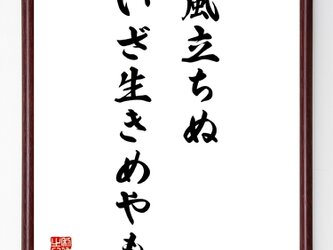 風立ちぬ
いざ生きめやも